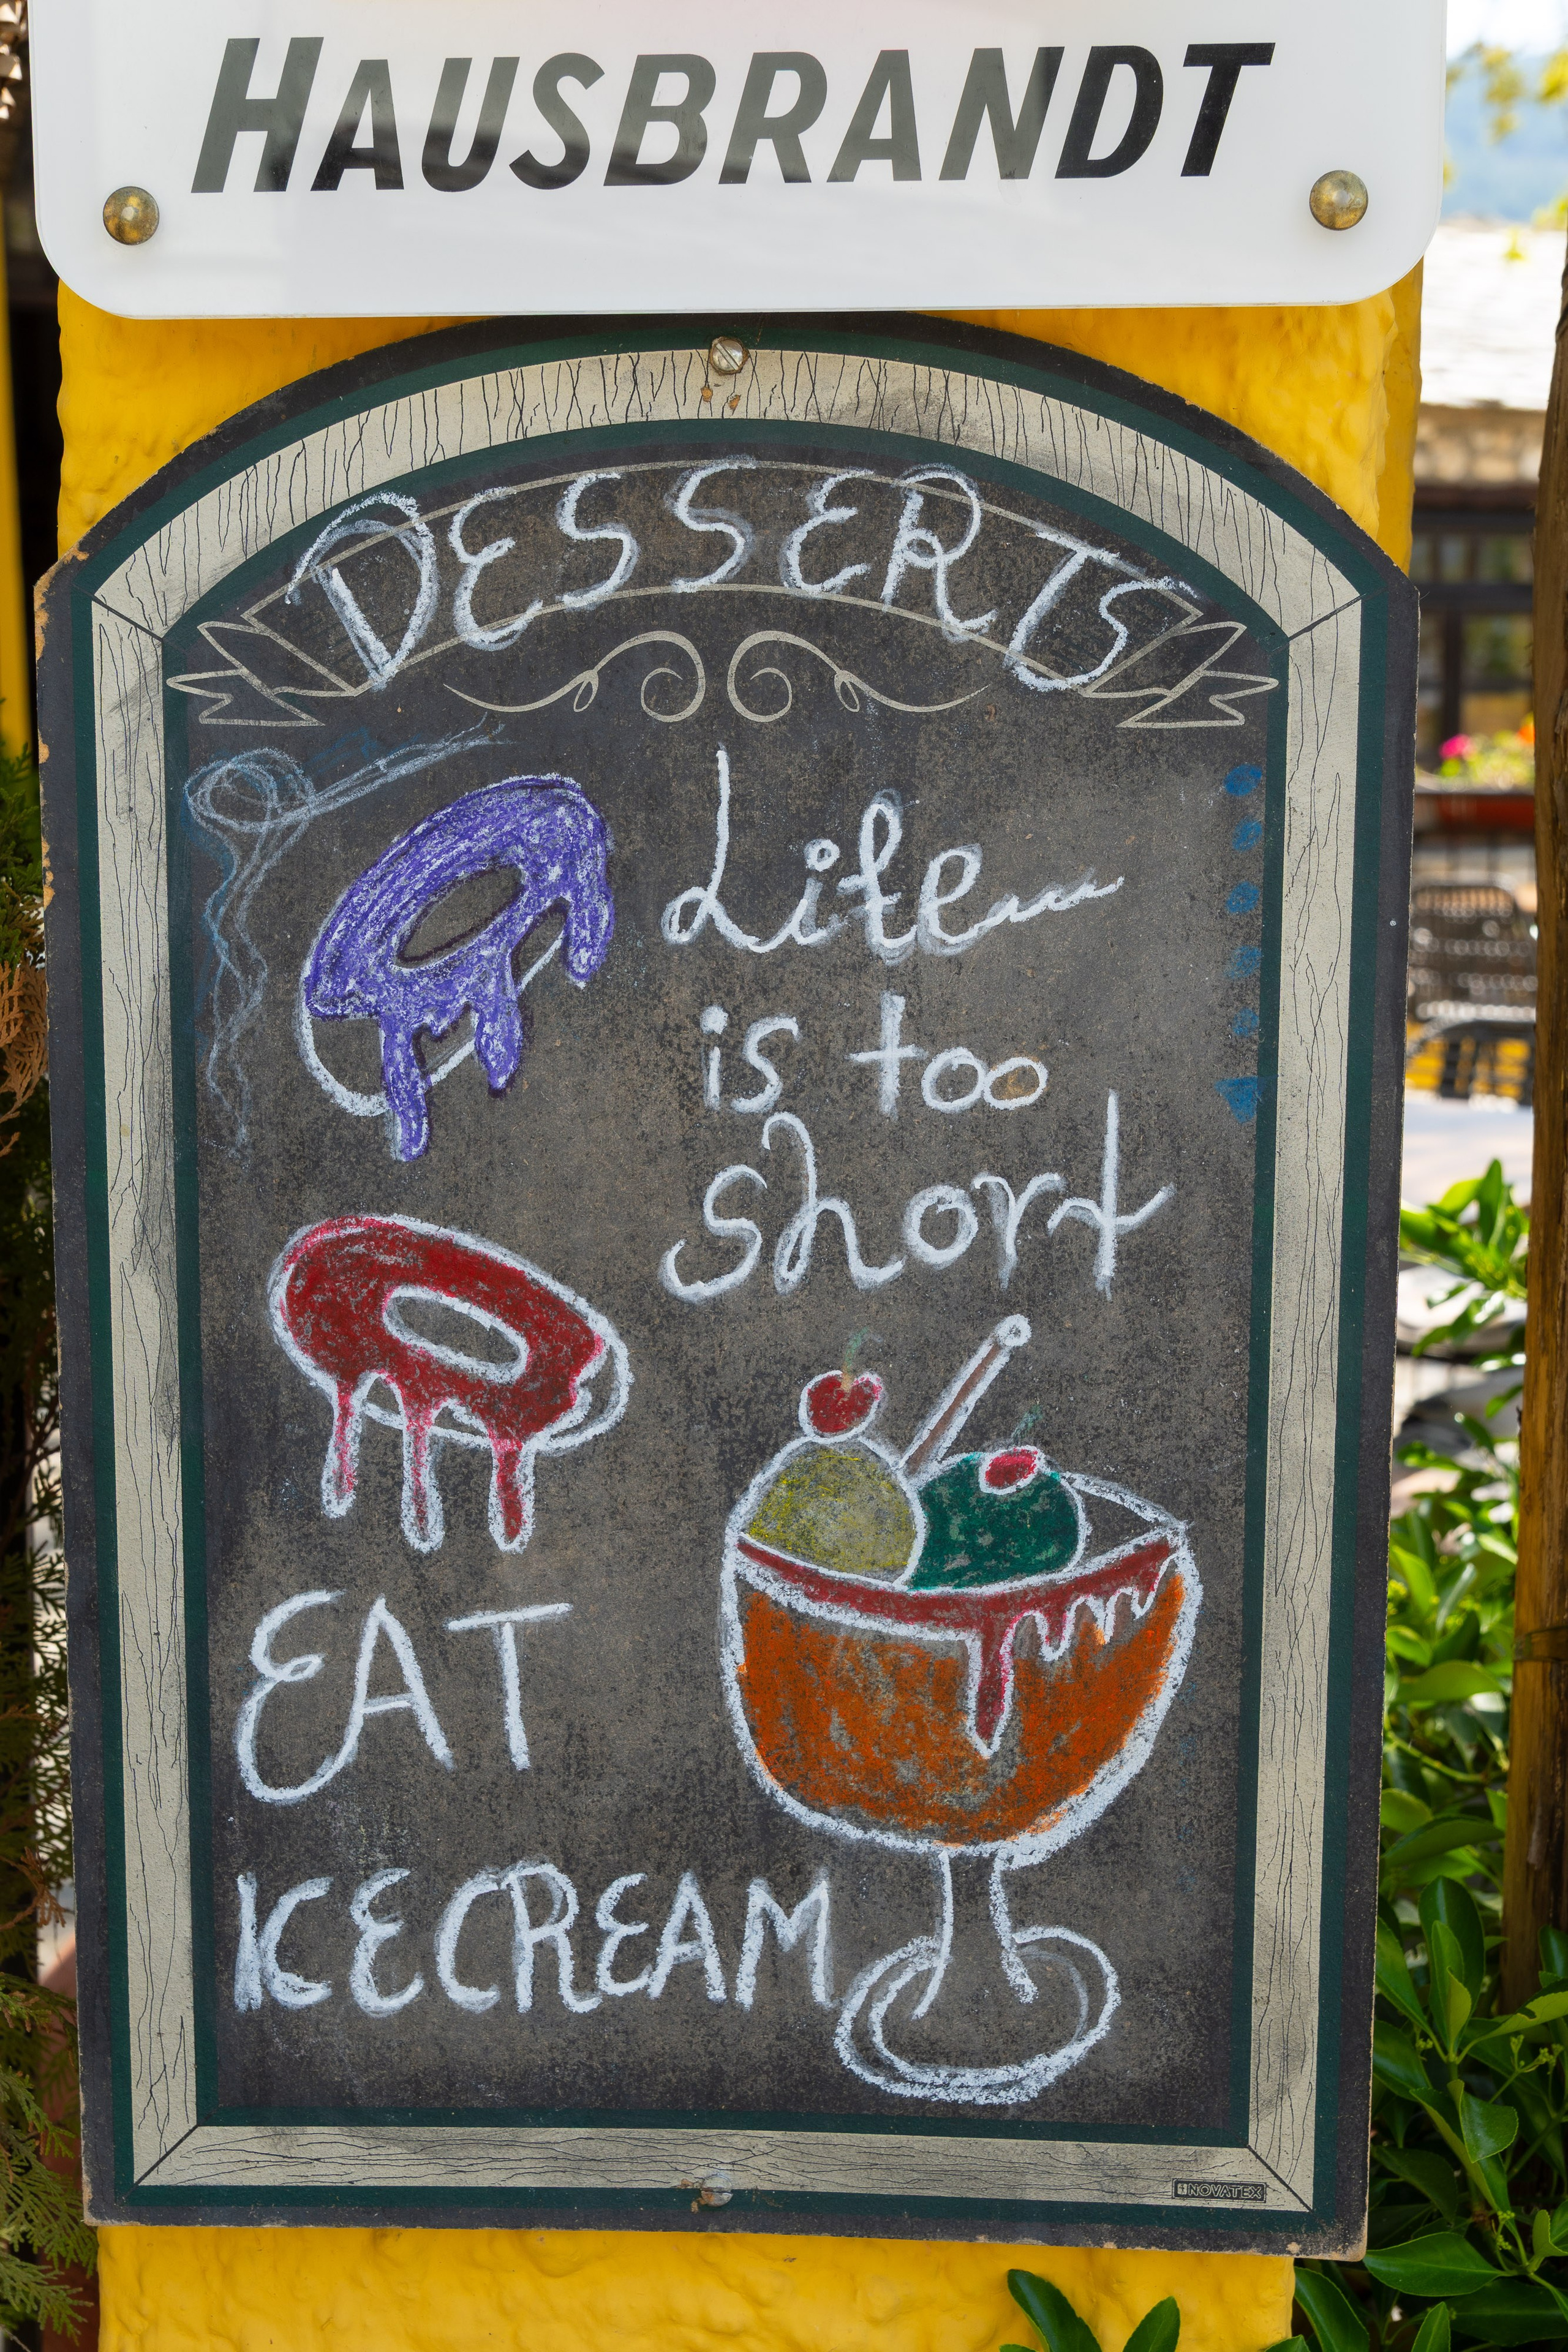 HAUSBRANDT
DESSERTS
Life
is too
short
EAT
ICECREAM
NOVATEX